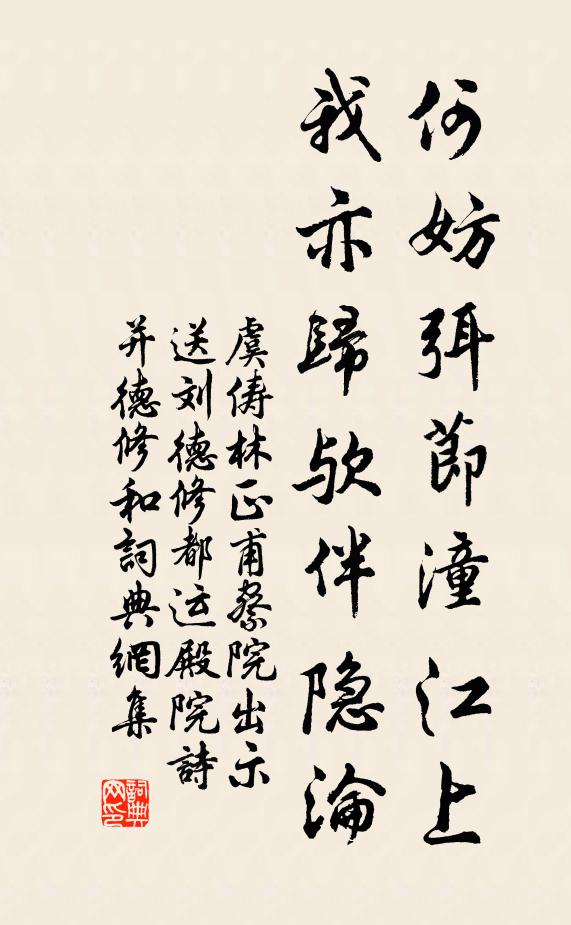 何妨弭節潼江上
我亦歸欤伴隐淪
虞俦林正甫察院出示
送刘德修都运殿院詩
并德修和詞典網集
詞典网印